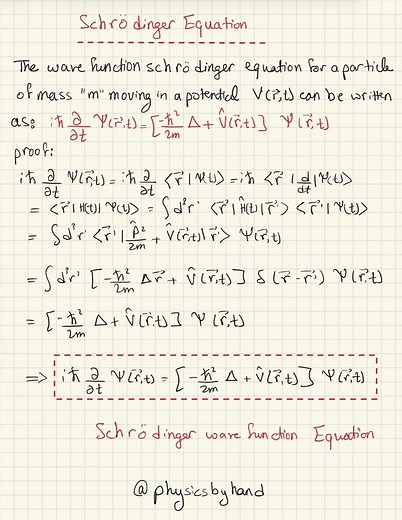 Schrödinger Equation
The wave function schrödinger equation for a particle
of mass "m" moving in a potential V(r⃗,t) can be written
as: iħ ∂/∂t Ψ(r⃗,t) = [-ħ²/2m Δ + V̂(r⃗,t)] Ψ(r⃗,t)
proof:
iħ ∂/∂t Ψ(r⃗,t) = iħ ∂/∂t ⟨r⃗|Ψ(t)⟩ = iħ ⟨r⃗| d/dt |Ψ(t)⟩
= ⟨r⃗|Ĥ(t)|Ψ(t)⟩ = ∫d³r' ⟨r⃗|Ĥ(t)|r⃗'⟩ ⟨r⃗'|Ψ(t)⟩
= ∫d³r' ⟨r⃗| P̂²/2m + V̂(r⃗,t)|r⃗'⟩ Ψ(r⃗,t)
= ∫d³r' [-ħ²/2m Δr⃗ + V̂(r⃗,t)] δ(r⃗-r⃗') Ψ(r⃗,t)
= [-ħ²/2m Δ + V̂(r⃗,t)] Ψ(r⃗,t)
⇒ iħ ∂/∂t Ψ(r⃗,t) = [-ħ²/2m Δ + V̂(r⃗,t)] Ψ(r⃗,t)
Schrödinger wave function Equation
@physicsbyhand